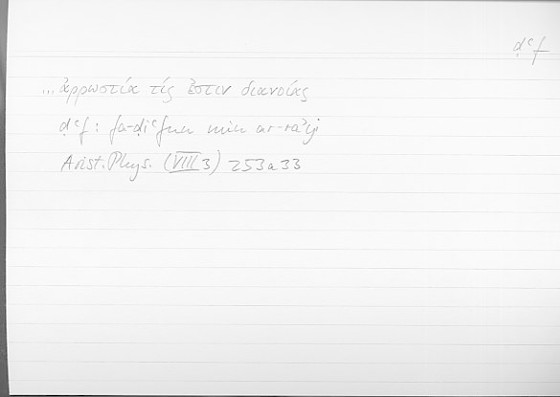 ḍʿf
... ἀρρωστία τίς ἐστιν διανοίας
ḍʿf: fa-ḍiʿfun min ar-raʾyi
Arist. Phys. (VIII 3) 253a33